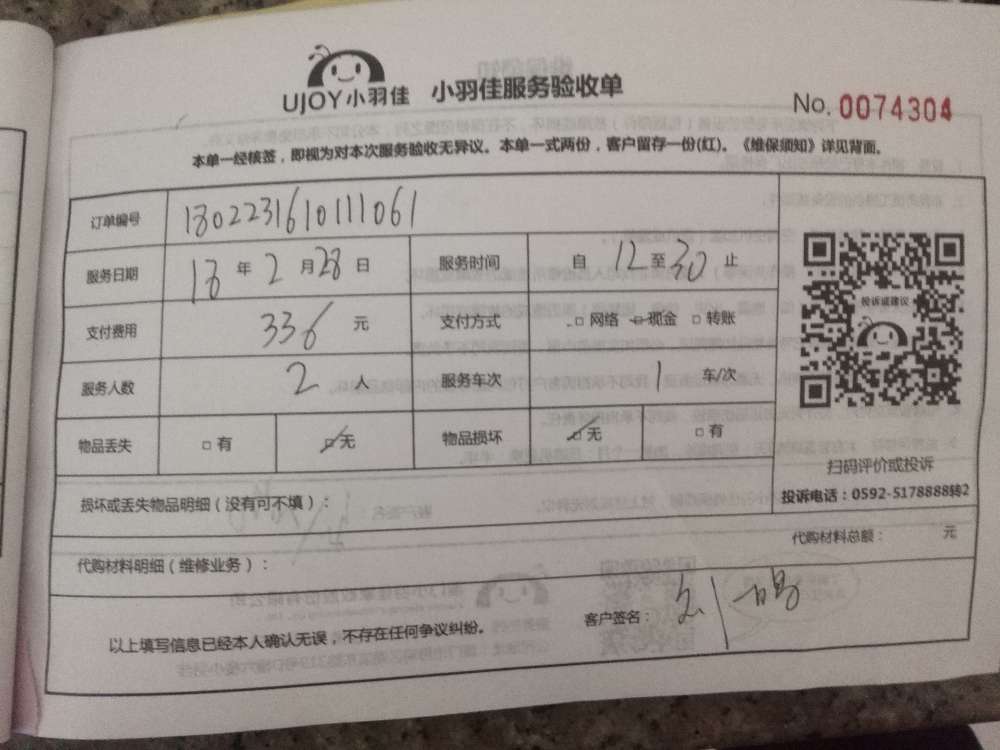 UJOY小羽佳 小羽佳服务验收单
No. 0074304
本单一经核签，即视为对本次服务验收无异议。本单一式两份，客户留存一份(红)。《维保须知》详见背面。
订单编号 180223161011061
服务日期 18 年 2 月 28 日 服务时间 自 12 至 30 止
支付费用 336 元 支付方式 □ 网络 □ 现金 □ 转账
服务人数 2 人 服务车次 1 车/次
物品丢失 □ 有 □ 无 物品损坏 □ 无 □ 有
投诉或建议
扫码评价或投诉
投诉电话：0592-5178888转2
损坏或丢失物品明细（没有可不填）：
代购材料明细（维修业务）： 代购材料总额： 元
以上填写信息已经本人确认无误，不存在任何争议纠纷。 客户签名：